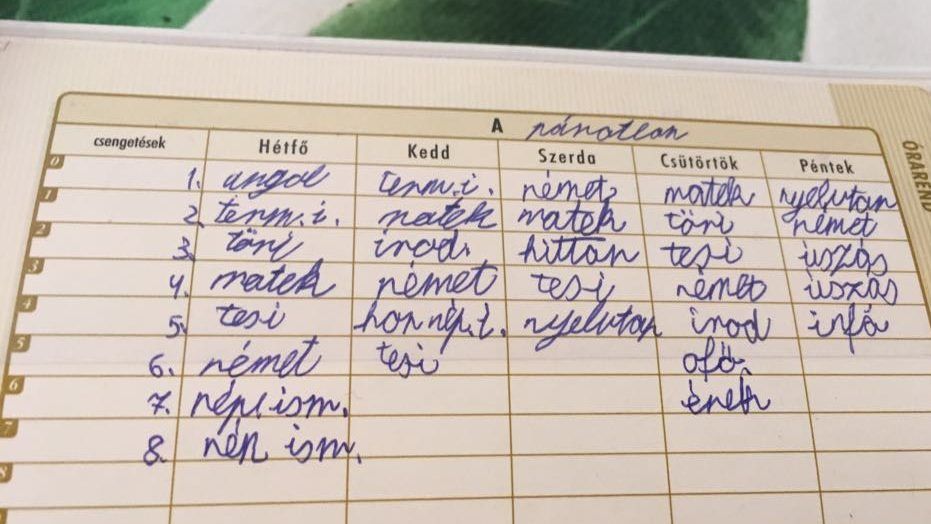 A páratlan
csengetések Hétfő Kedd Szerda Csütörtök Péntek
ÓRAREND
0
1. angol term.i. német matek nyelvtan
1
2. term.i. matek matek töri német
2
3. töri irod. hittan tesi úszás
3
4. matek német tesi német úszás
4
5. tesi hon nép.i. nyelvtan irod infó
5
6. német tesi ofő.
6
7. népi ism. ének
7
8. nép ism.
8